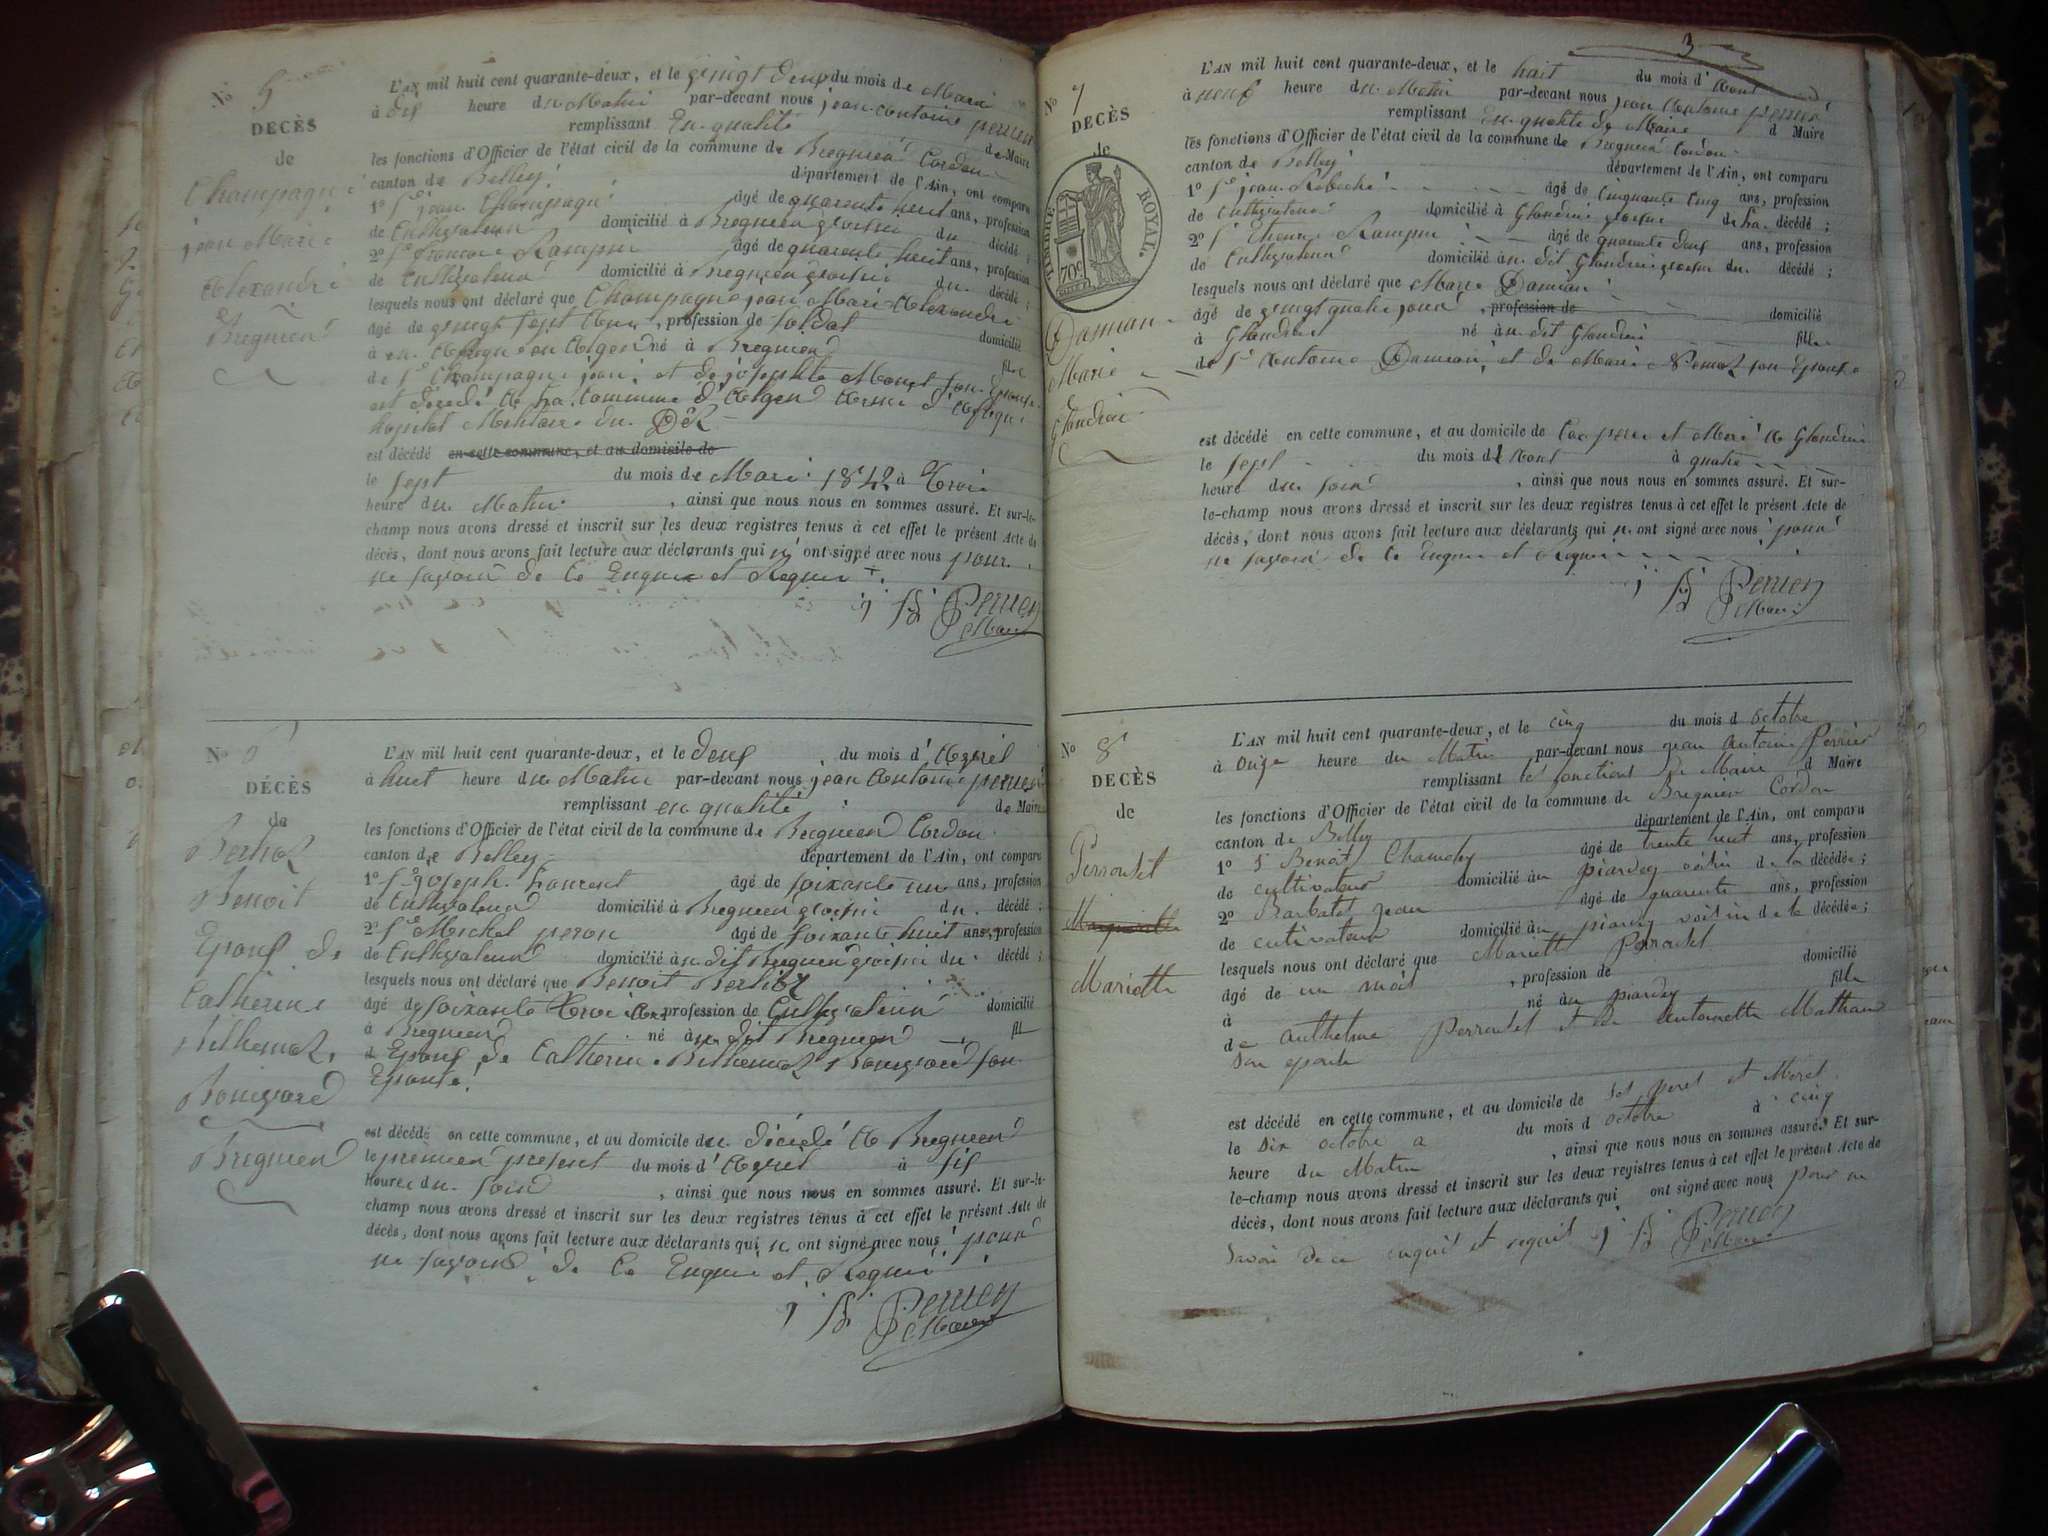 No 5
DECÈS
de
Champagne
jean Marie
Alexandre
Bregnier
L'AN mil huit cent quarante-deux, et le vingt deux du mois de Mars
à dix heure du Matin par-devant nous jean Antoine perrier
remplissant En qualité de Maire
les fonctions d'Officier de l'état civil de la commune de Bregnier Cordon
canton de Belley département de l'Ain, ont comparu
1º Sr jean Champagne âgé de quarente huit ans, profession
de Cultivateur domicilié à Bregnier voisin du décédé ;
2º Sr francois Rampin âgé de quarente huit ans, profession
de Cultivateur domicilié à Bregnier voisin du décédé ;
lesquels nous ont déclaré que Champagne jean Marie Alexandre
âgé de vingt sept Ans, profession de Soldat domicilié
à en né à Bregnier fils
de Sr Champagne jean, et de josephte Monet son Epouse
est decedé A La Commune d'
hopital Militaire du Dey
est décédé en cette commune, et au domicile de
le sept du mois de Mars 1842 à Trois
heure du Matin, ainsi que nous nous en sommes assuré. Et sur-le-
champ nous avons dressé et inscrit sur les deux registres tenus à cet effet le présent Acte de
décès, dont nous avons fait lecture aux déclarants qui n'ont signé avec nous pour
ne savoir de ce Enquis et Requis
j A Perrier
Maire
No 6
DÉCÈS
de
Berlioz
Benoit
Epoux de
Catherine
Bithemoz
Bregnier
L'AN mil huit cent quarante-deux, et le deux du mois d'Avril
à huit heure du Matin par-devant nous jean Antoine perrier
remplissant en qualité de Maire
les fonctions d'Officier de l'état civil de la commune de Bregnier Cordon
canton de Belley département de l'Ain, ont comparu
1º Sr joseph Laurent âgé de soixante un ans, profession
de Cultivateur domicilié à Bregnier voisin du décédé ;
2º Sr Michel peron âgé de soixante huit ans, profession
de Cultivateur domicilié au dit Bregnier voisin du décédé ;
lesquels nous ont déclaré que Benoit Berlioz
âgé de soixante Trois Ans profession de Cultivateur domicilié
à Bregnier né au dit Bregnier fil
d Epoux de Catherine Bithemoz son
Epouse
est décédé en cette commune, et au domicile du décédé A Bregnier
le premier present du mois d'Avril à six
heure du soir, ainsi que nous nous en sommes assuré. Et sur-le-
champ nous avons dressé et inscrit sur les deux registres tenus à cet effet le présent Acte de
décès, dont nous avons fait lecture aux déclarants qui n'ont signé avec nous pour
ne savoir de ce Enquis et Requis
j A Perrier
Maire
3
No 7
DECÈS
de
TIMBRE ROYAL.
70c
Damian
Marie
Glandieu
L'AN mil huit cent quarante-deux, et le huit du mois d'Aout
à neuf heure du Matin par-devant nous jean Antoine perrier
remplissant En qualité de Maire d Maire
les fonctions d'Officier de l'état civil de la commune de Bregnier Cordon
canton de Belley département de l'Ain, ont comparu
1º Sr jean âgé de Cinquante Cinq ans, profession
de Cultivateur domicilié à Glandieu voisin de La décédé ;
2º Sr Etienne Rampin âgé de quarente deux ans, profession
de Cultivateur domicilié au dit Glandieu voisin du décédé ;
lesquels nous ont déclaré que Marie Damian
âgé de vingt quatre jours, profession de domicilié
à Glandieu né au dit Glandieu fille
de Sr Antoine Damian, et de Marie son Epouse
est décédé en cette commune, et au domicile de Ces pere et Mere A Glandieu
le sept du mois d'Aout à quatre
heure du soir, ainsi que nous nous en sommes assuré. Et sur-
le-champ nous avons dressé et inscrit sur les deux registres tenus à cet effet le présent Acte de
décès, dont nous avons fait lecture aux déclarants qui n'ont signé avec nous pour
ne savoir de ce Enquis et Requis
j A Perrier
Maire
No 8
DECÈS
de
Perroutet
Mariette
L'AN mil huit cent quarante-deux, et le cinq du mois d octobre
à onze heure du Matin par-devant nous jean Antoine Perrier
remplissant les fonctions de Maire d Maire
les fonctions d'Officier de l'état civil de la commune de Bregnier Cordon
canton de Belley département de l'Ain, ont comparu
1º S Benoit Chamchy âgé de trente huit ans, profession
de cultivateur domicilié au piardey voisin de la décédée ;
2º Barbatet jean âgé de quarente ans, profession
de cultivateur domicilié au piardey voisin de la décédée ;
lesquels nous ont déclaré que Mariette Perroutet
âgé de un mois, profession de domicilié
à né au piardey fille
de anthelme Perroutet et de Antoinette Mathan
son epouse
est décédé en cette commune, et au domicile de ses peres et Meres
le Dix octobre a du mois d octobre à cinq
heure du Matin, ainsi que nous nous en sommes assuré. Et sur-
le-champ nous avons dressé et inscrit sur les deux registres tenus à cet effet le présent Acte de
décès, dont nous avons fait lecture aux déclarants qui ont signé avec nous pour ne
savoir de ce enquis et requis j A Perrier
Maire